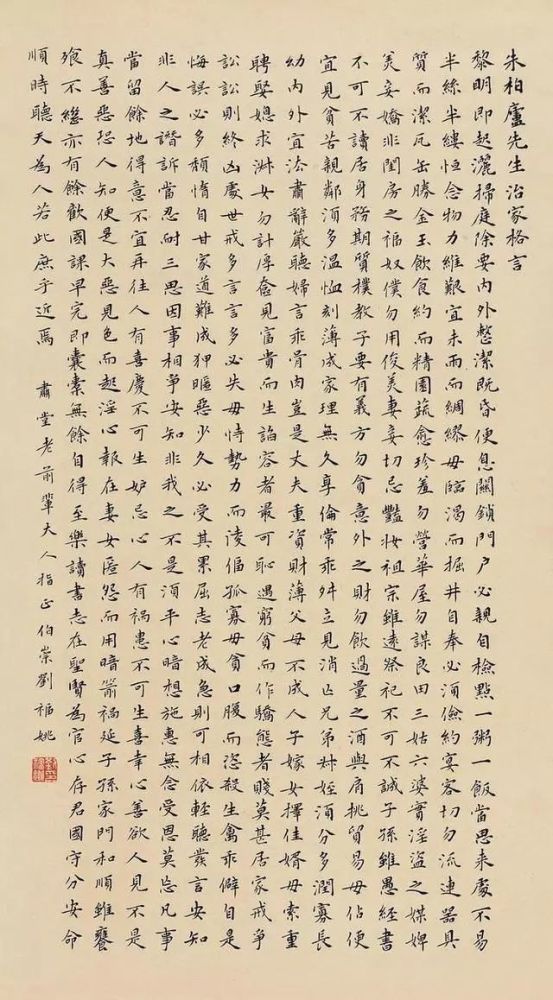 朱柏廬先生治家格言
黎明即起灑掃庭除要內外整潔既昏便息關鎖門戶必親自檢點一粥一飯當思来處不易
半絲半縷恒念物力維艱宜未雨而綢繆毋臨渴而掘井自奉必須儉約宴客切勿流連器具
質而潔瓦缶勝金玉飲食約而精園蔬愈珍羞勿營華屋勿謀良田三姑六婆實淫盜之媒婢
美妾嬌非閨房之福奴僕勿用俊美妻妾切忌艷妝祖宗雖遠祭祀不可不誠子孫雖愚經書
不可不讀居身務期質樸教子要有義方勿貪意外之財勿飲過量之酒與肩挑貿易毋佔便
宜見貧苦親鄰須多温恤刻薄成家理無久享倫常乖舛立見消亡兄弟叔姪須分多潤寡長
幼內外宜法肅辭嚴聽婦言乖骨肉豈是丈夫重資財薄父母不成人子嫁女擇佳婿毋索重
聘娶媳求淑女勿計厚奩見富貴而生諂容者最可恥遇窮貧而作驕態者賤莫甚居家戒爭
訟訟則終凶處世戒多言言多必失毋恃勢力而凌偪孤寡毋貪口腹而恣殺生禽乖僻自是
悔誤必多頹惰自甘家道難成狎暱惡少久必受其累屈志老成急則可相依輕聽發言安知
非人之譖訴當忍耐三思因事相爭安知非我之不是須平心暗想施惠無念受恩莫忘凡事
當留餘地得意不宜再往人有喜慶不可生妒忌心人有禍患不可生喜幸心善欲人見不是
真善惡恐人知便是大惡見色而起淫心報在妻女匿怨而用暗箭禍延子孫家門和順雖饔
飧不繼亦有餘歡國課早完即囊橐無餘自得至樂讀書志在聖賢為官心存君國守分安命
順時聽天為人若此庶乎近焉 肅堂老前輩大人指正 伯崇劉福姚